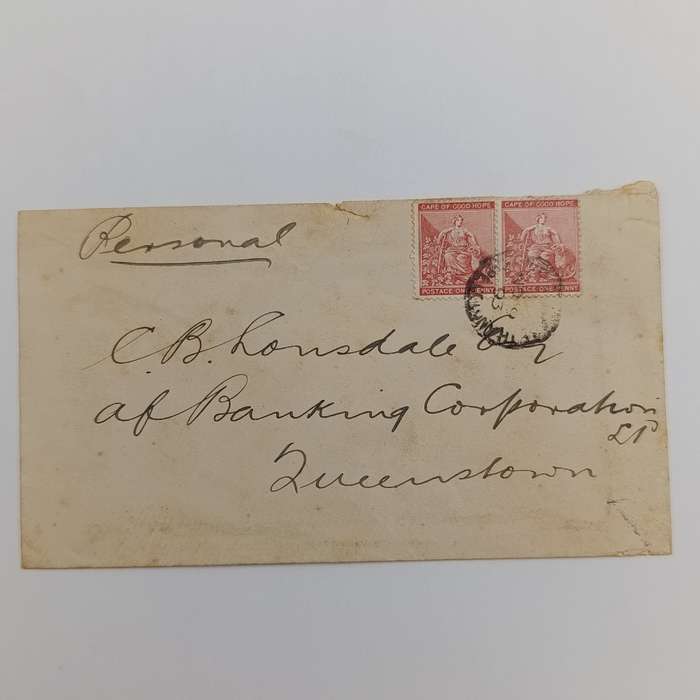 CAPE OF GOOD HOPE CAPE OF GOOD HOPE
POSTAGE ONE PENNY POSTAGE ONE PENNY
Personal
C. B. Lonsdale Esq
af Banking Corporation
Ld
Queenstown